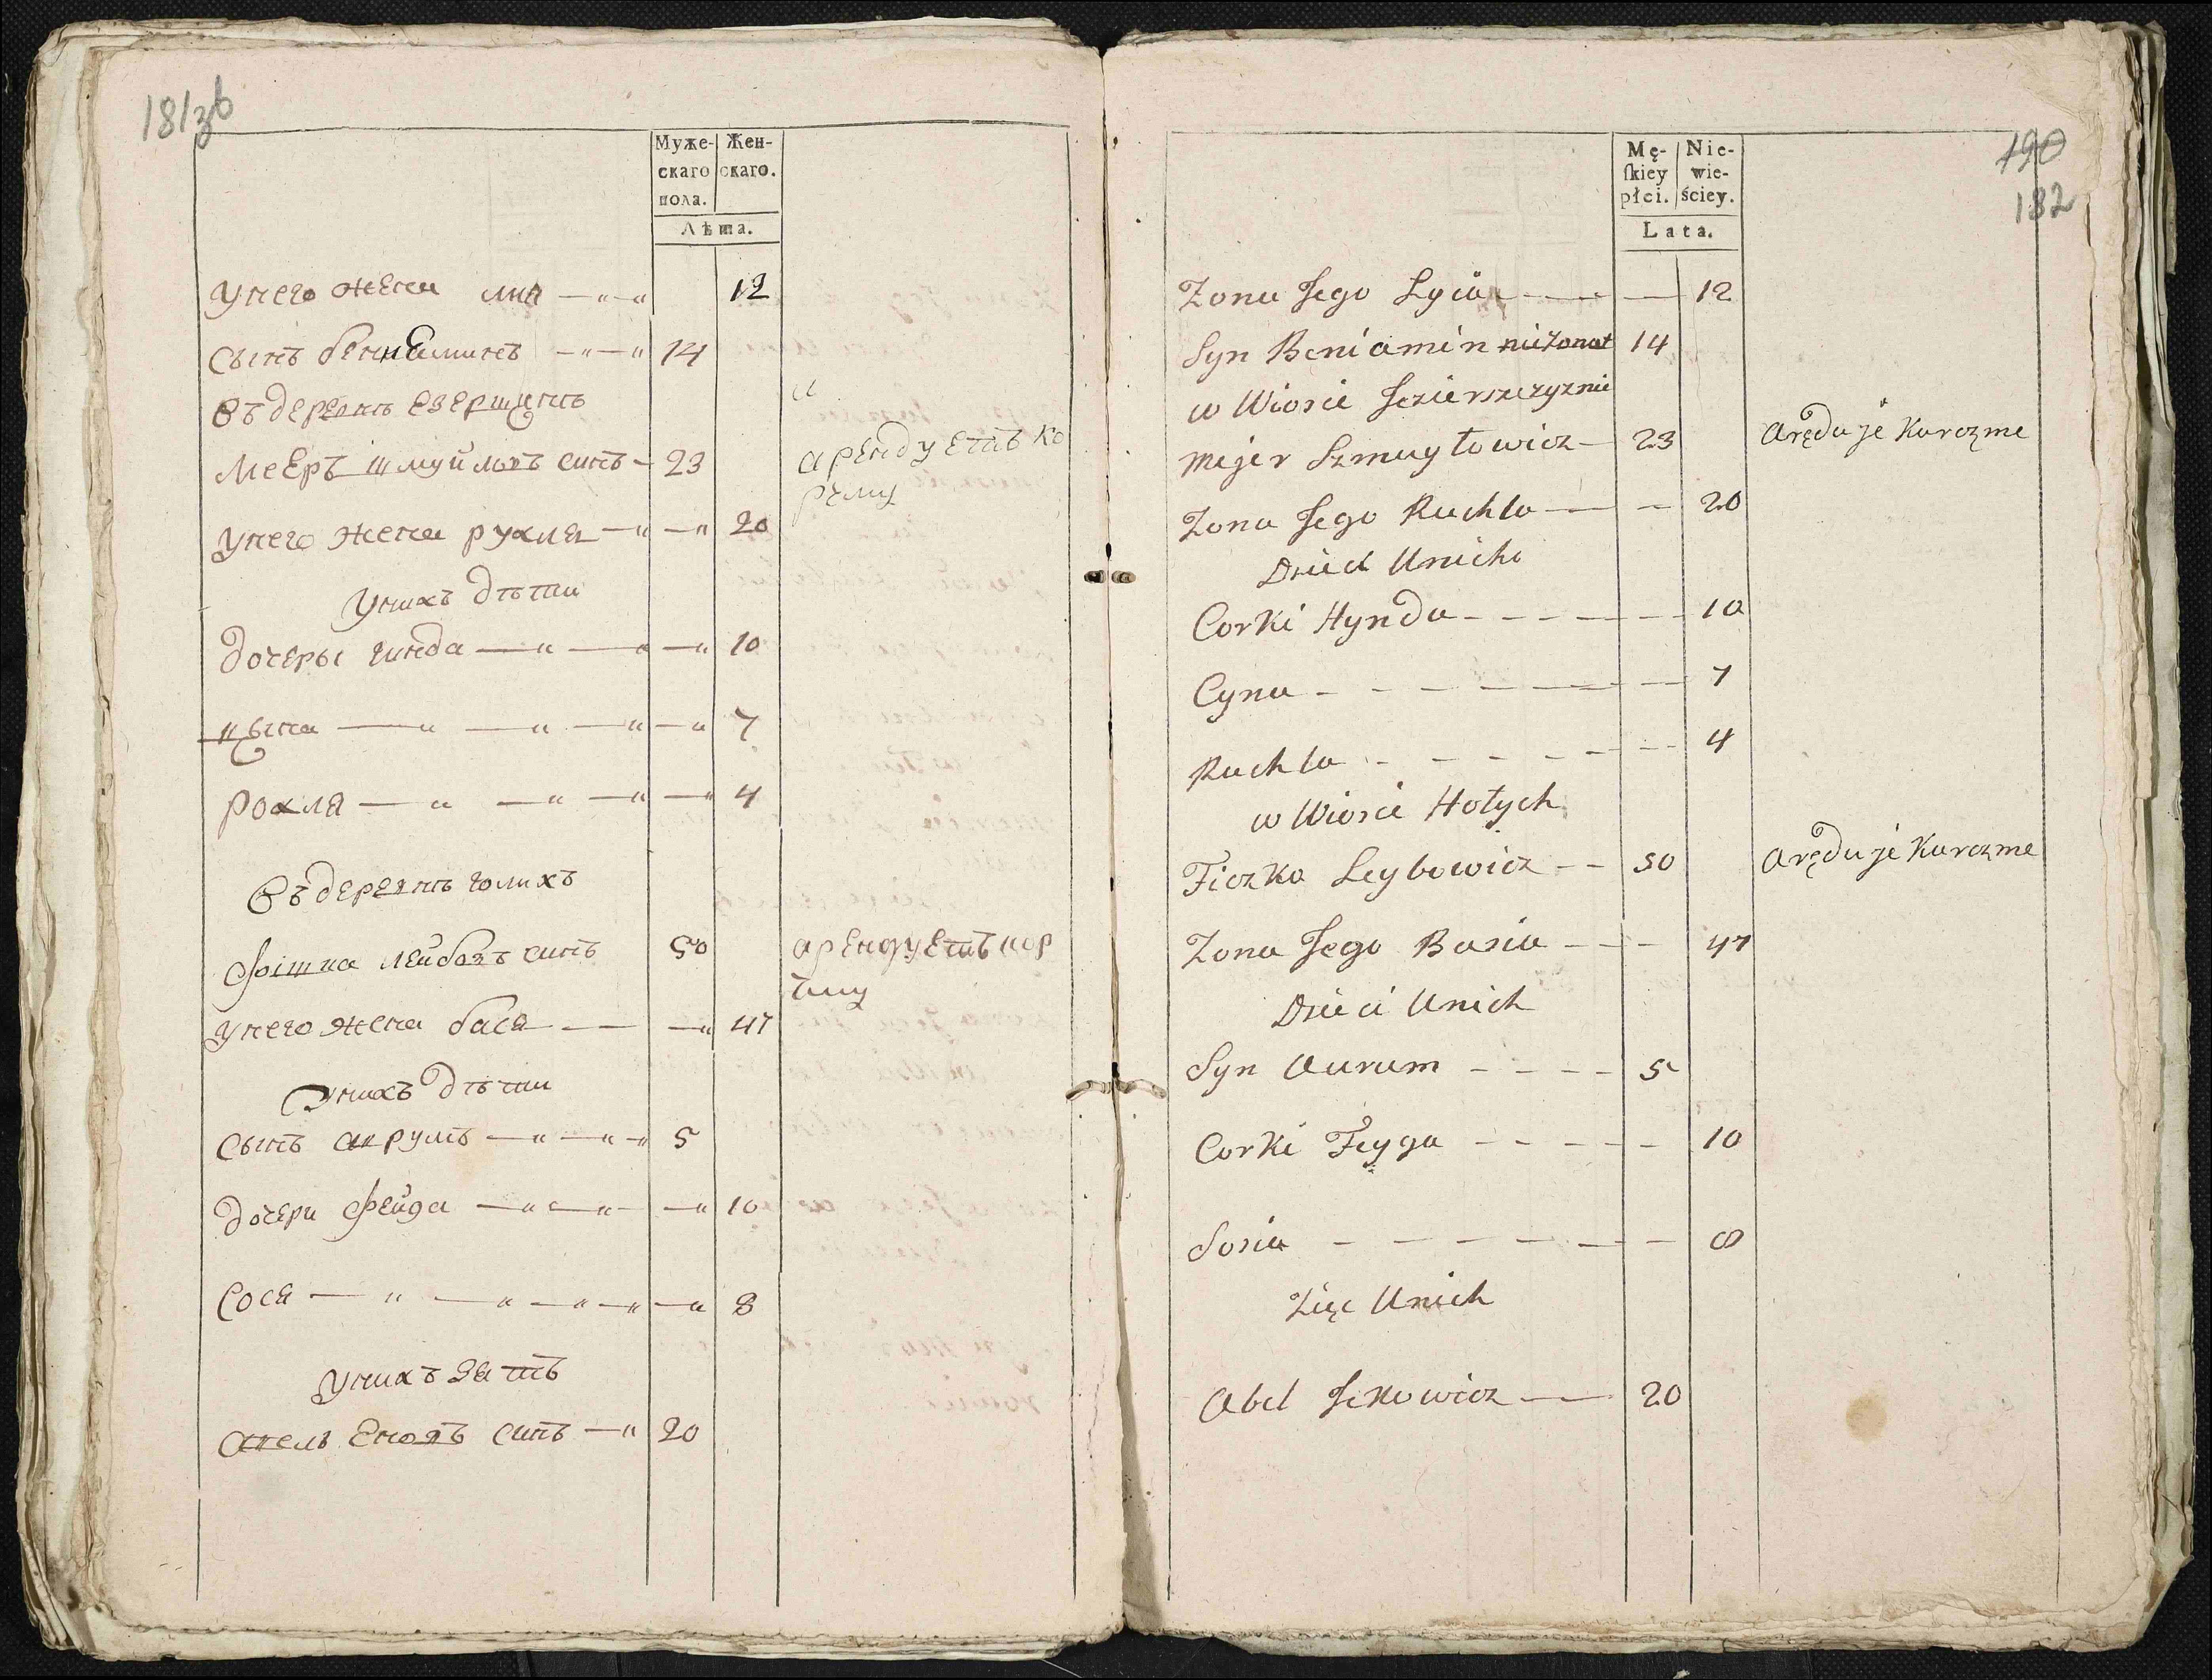 181зв
Муже- Жен-
скаго скаго.
пола.
Лѣта.
Унего жена лиа 12
Сынъ бениеминъ 14
Въ деревнѣ езерщинѣ
Мееръ шмуйловъ синъ 23 арендуетъ ко
рчму
Унего жена рухля 20
Унихъ дѣти
Дочеры гинда 10
цына 7
Рохля 4
Въ деревнѣ голихъ
Фишка лейбовъ синъ 50 арендуетъ кор
чму
Унего жена бася 47
Унихъ дѣти
Сынъ аврумъ 5
Дочери Фейга 10
Сося 8
Унихъ зять
Авель еновъ синъ 20
190
182
Mę- Nie-
ſkiey wie-
płci. ściey.
Lata.
Zona Jego Lyia 12
Syn Beniamin nieżonat 14
w Wiosce Jezierszczyznie
Mejer Szmuyłowicz 23 Aręduje Karczme
Zona Jego Ruchla 20
Dzieci Unich
Corki Hynda 10
Cyna 7
Ruchla 4
w Wiosce Hołych
Ficzka Leybowicz 50 Aręduje Karczme
Zona Jego Basia 47
Dzieci Unich
Syn Aurum 5
Corki Feyga 10
Sosia 8
Zięc Unich
Abel Jenowicz 20